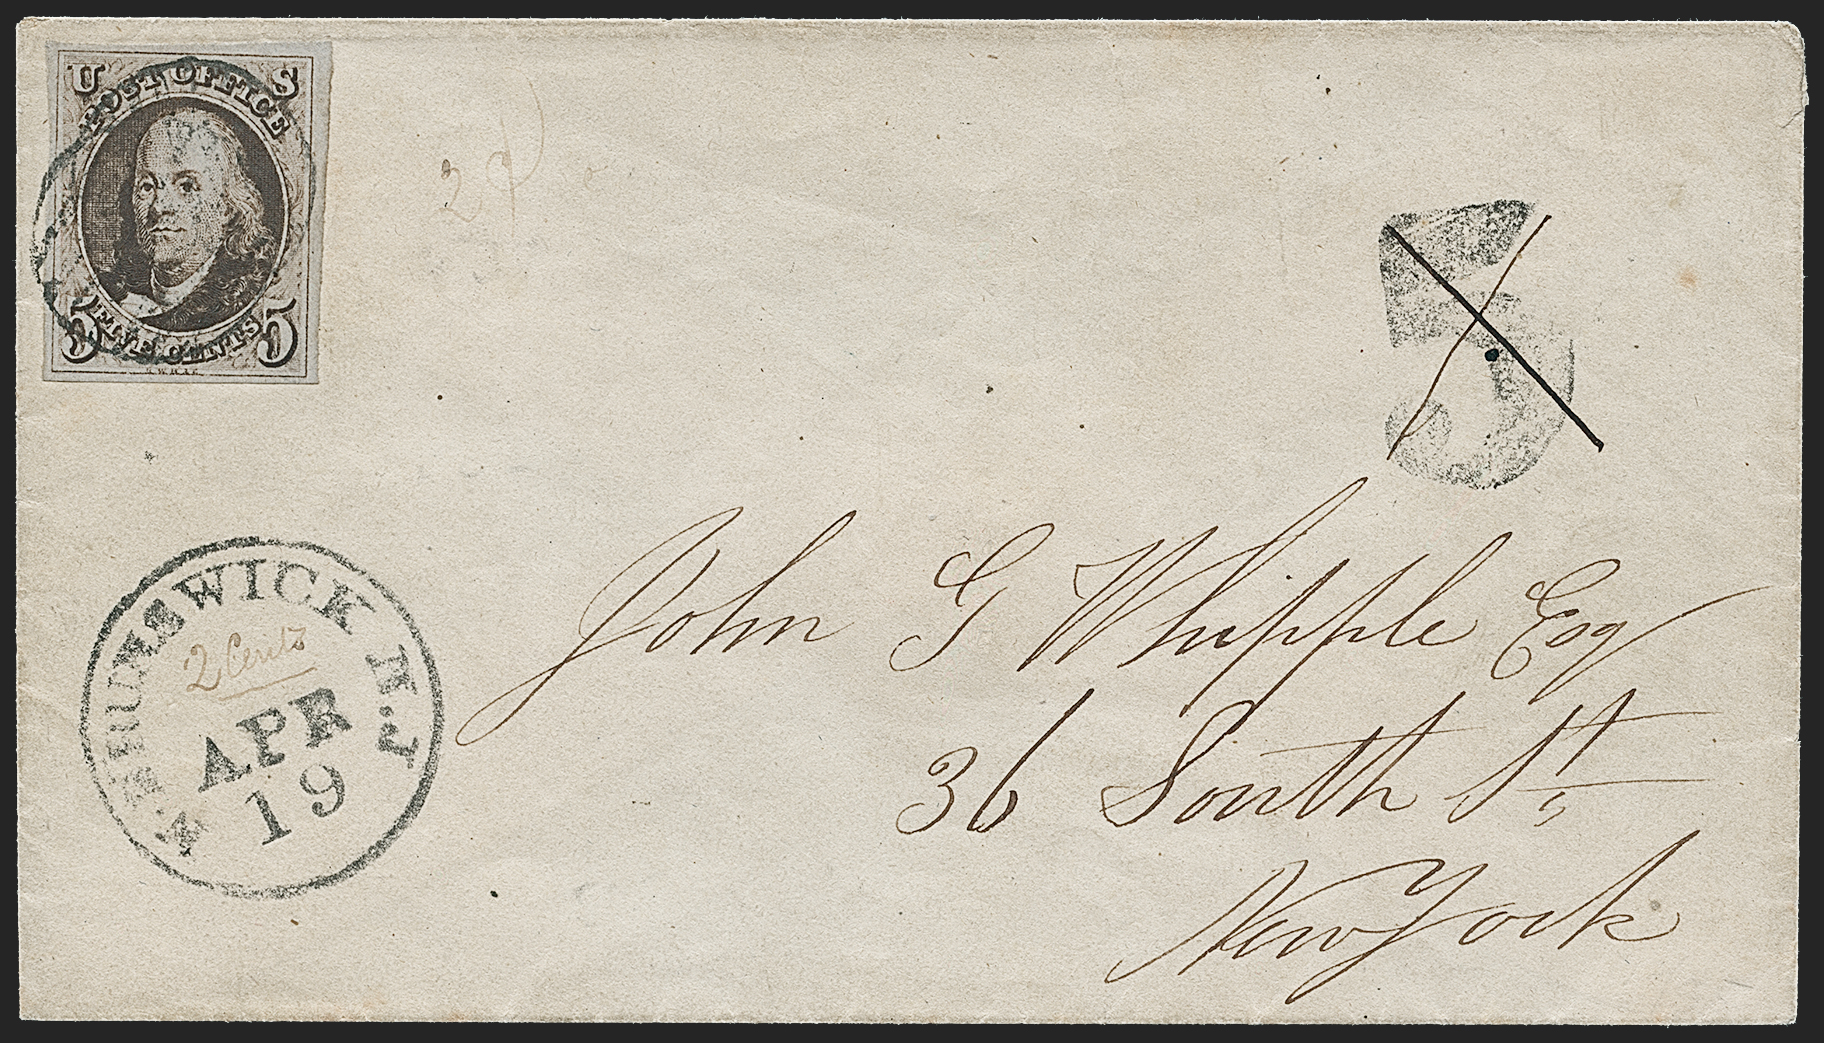 U S
POST OFFICE
5 FIVE CENTS 5
R.W.H.& E.
5
N. BRUNSWICK N.J
2 Cents
APR
19
John G Whipple Esq
36 South St,
New York